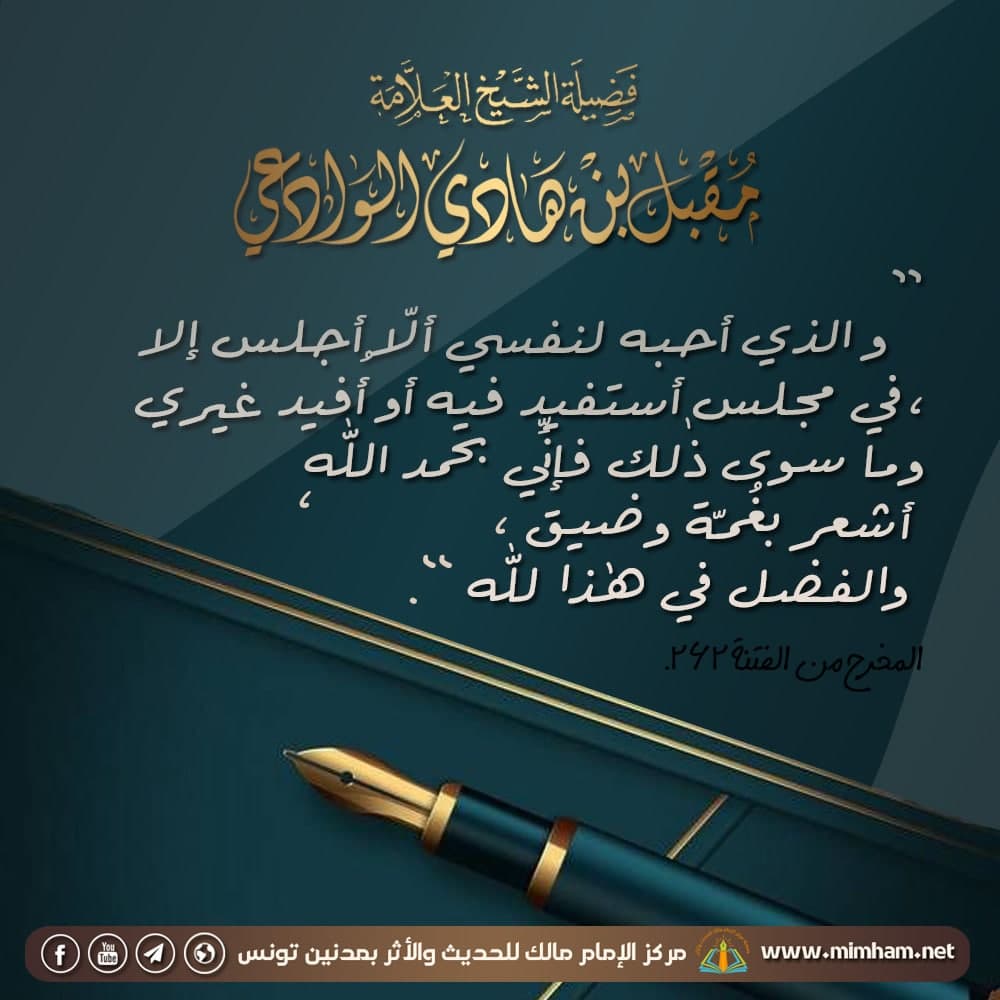 فَضِيلَة الشَّيْخ العَلَّامَة
مُقْبِل بِنْ هَادِي الوَادِعِي
"
والذي أحبه لنفسي ألّا أجلس إلا
في مجلس أستفيد فيه أو أفيد غيري،
وما سوى ذٰلك فإنِّي بحمد اللّٰه،
أشعر بغُمّة وضيق،
والفضل في هٰذا للّٰه".
المخرج من الفتنة ٢٦٢.
www.mimham.net
مركز الإمام مالك للحديث والأثر بمدنين تونس
You Tube